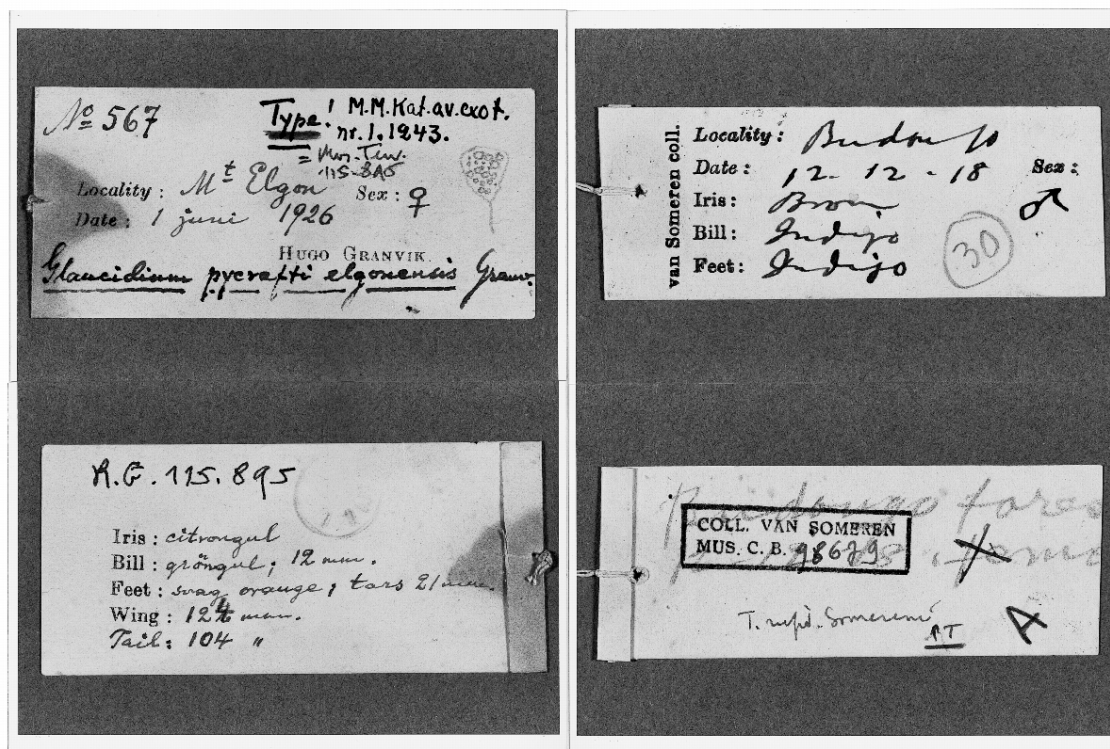 No 567
Type! M.M.Kat.av.exot.
nr.1.1243.
Locality: Mt Elgon Sex: ♀
Date: 1 juni 1926
HUGO GRANVIK.
Glaucidium pycrafti elgonensis Granv.
R.G. 115.895
Iris: citrongul
Bill: gröngul; 12 mm.
Feet: svag orange; tars 21 mm.
Wing: 124 mm.
Tail: 104 "
van Someren coll.
Locality: Budongo
Date: 12-12-18 Sex:
Iris: Brown ♂
Bill: Indigo
Feet: Indigo
30
COLL. VAN SOMEREN
MUS. C. B. 98679
T. rufo. Somereni
PT
A